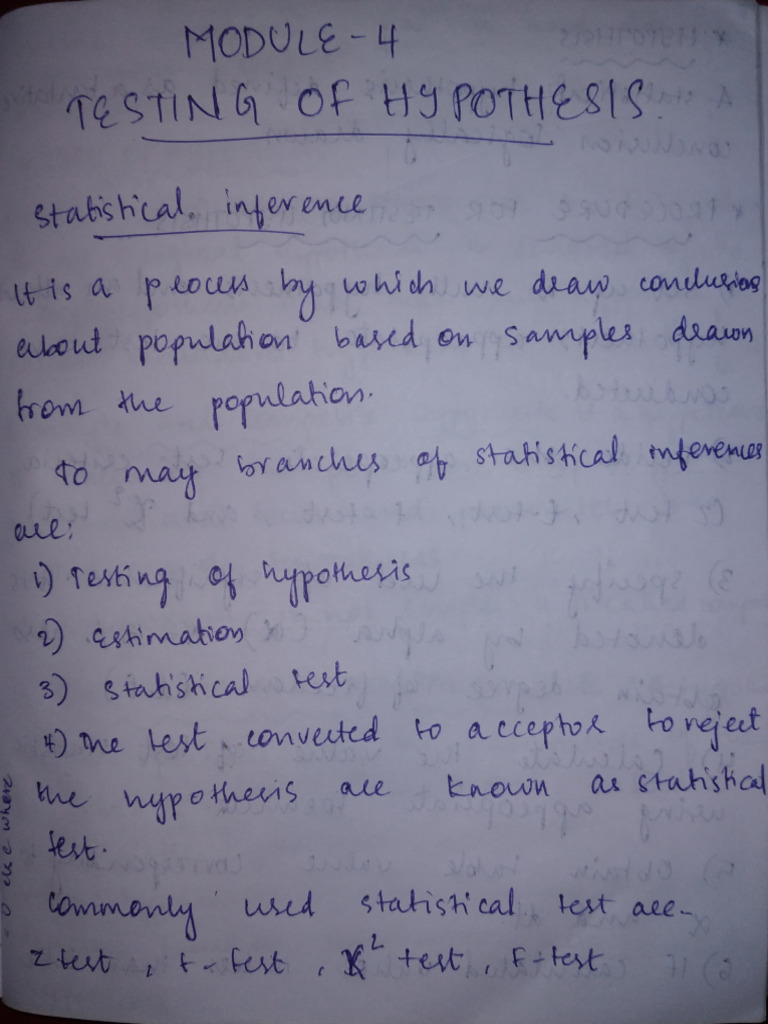 MODULE - 4
TESTING OF HYPOTHESIS.
statistical. inference
It is a process by which we draw conclusions
about population based on samples drawn
from the population.
To may branches of statistical inferences
are:
1) Testing of hypothesis
2) Estimation
3) Statistical test
4) The test converted to acceptor to reject
the hypothesis are known as statistical
test.
commonly used statistical test are-
z test, t-test, χ² test, F-test